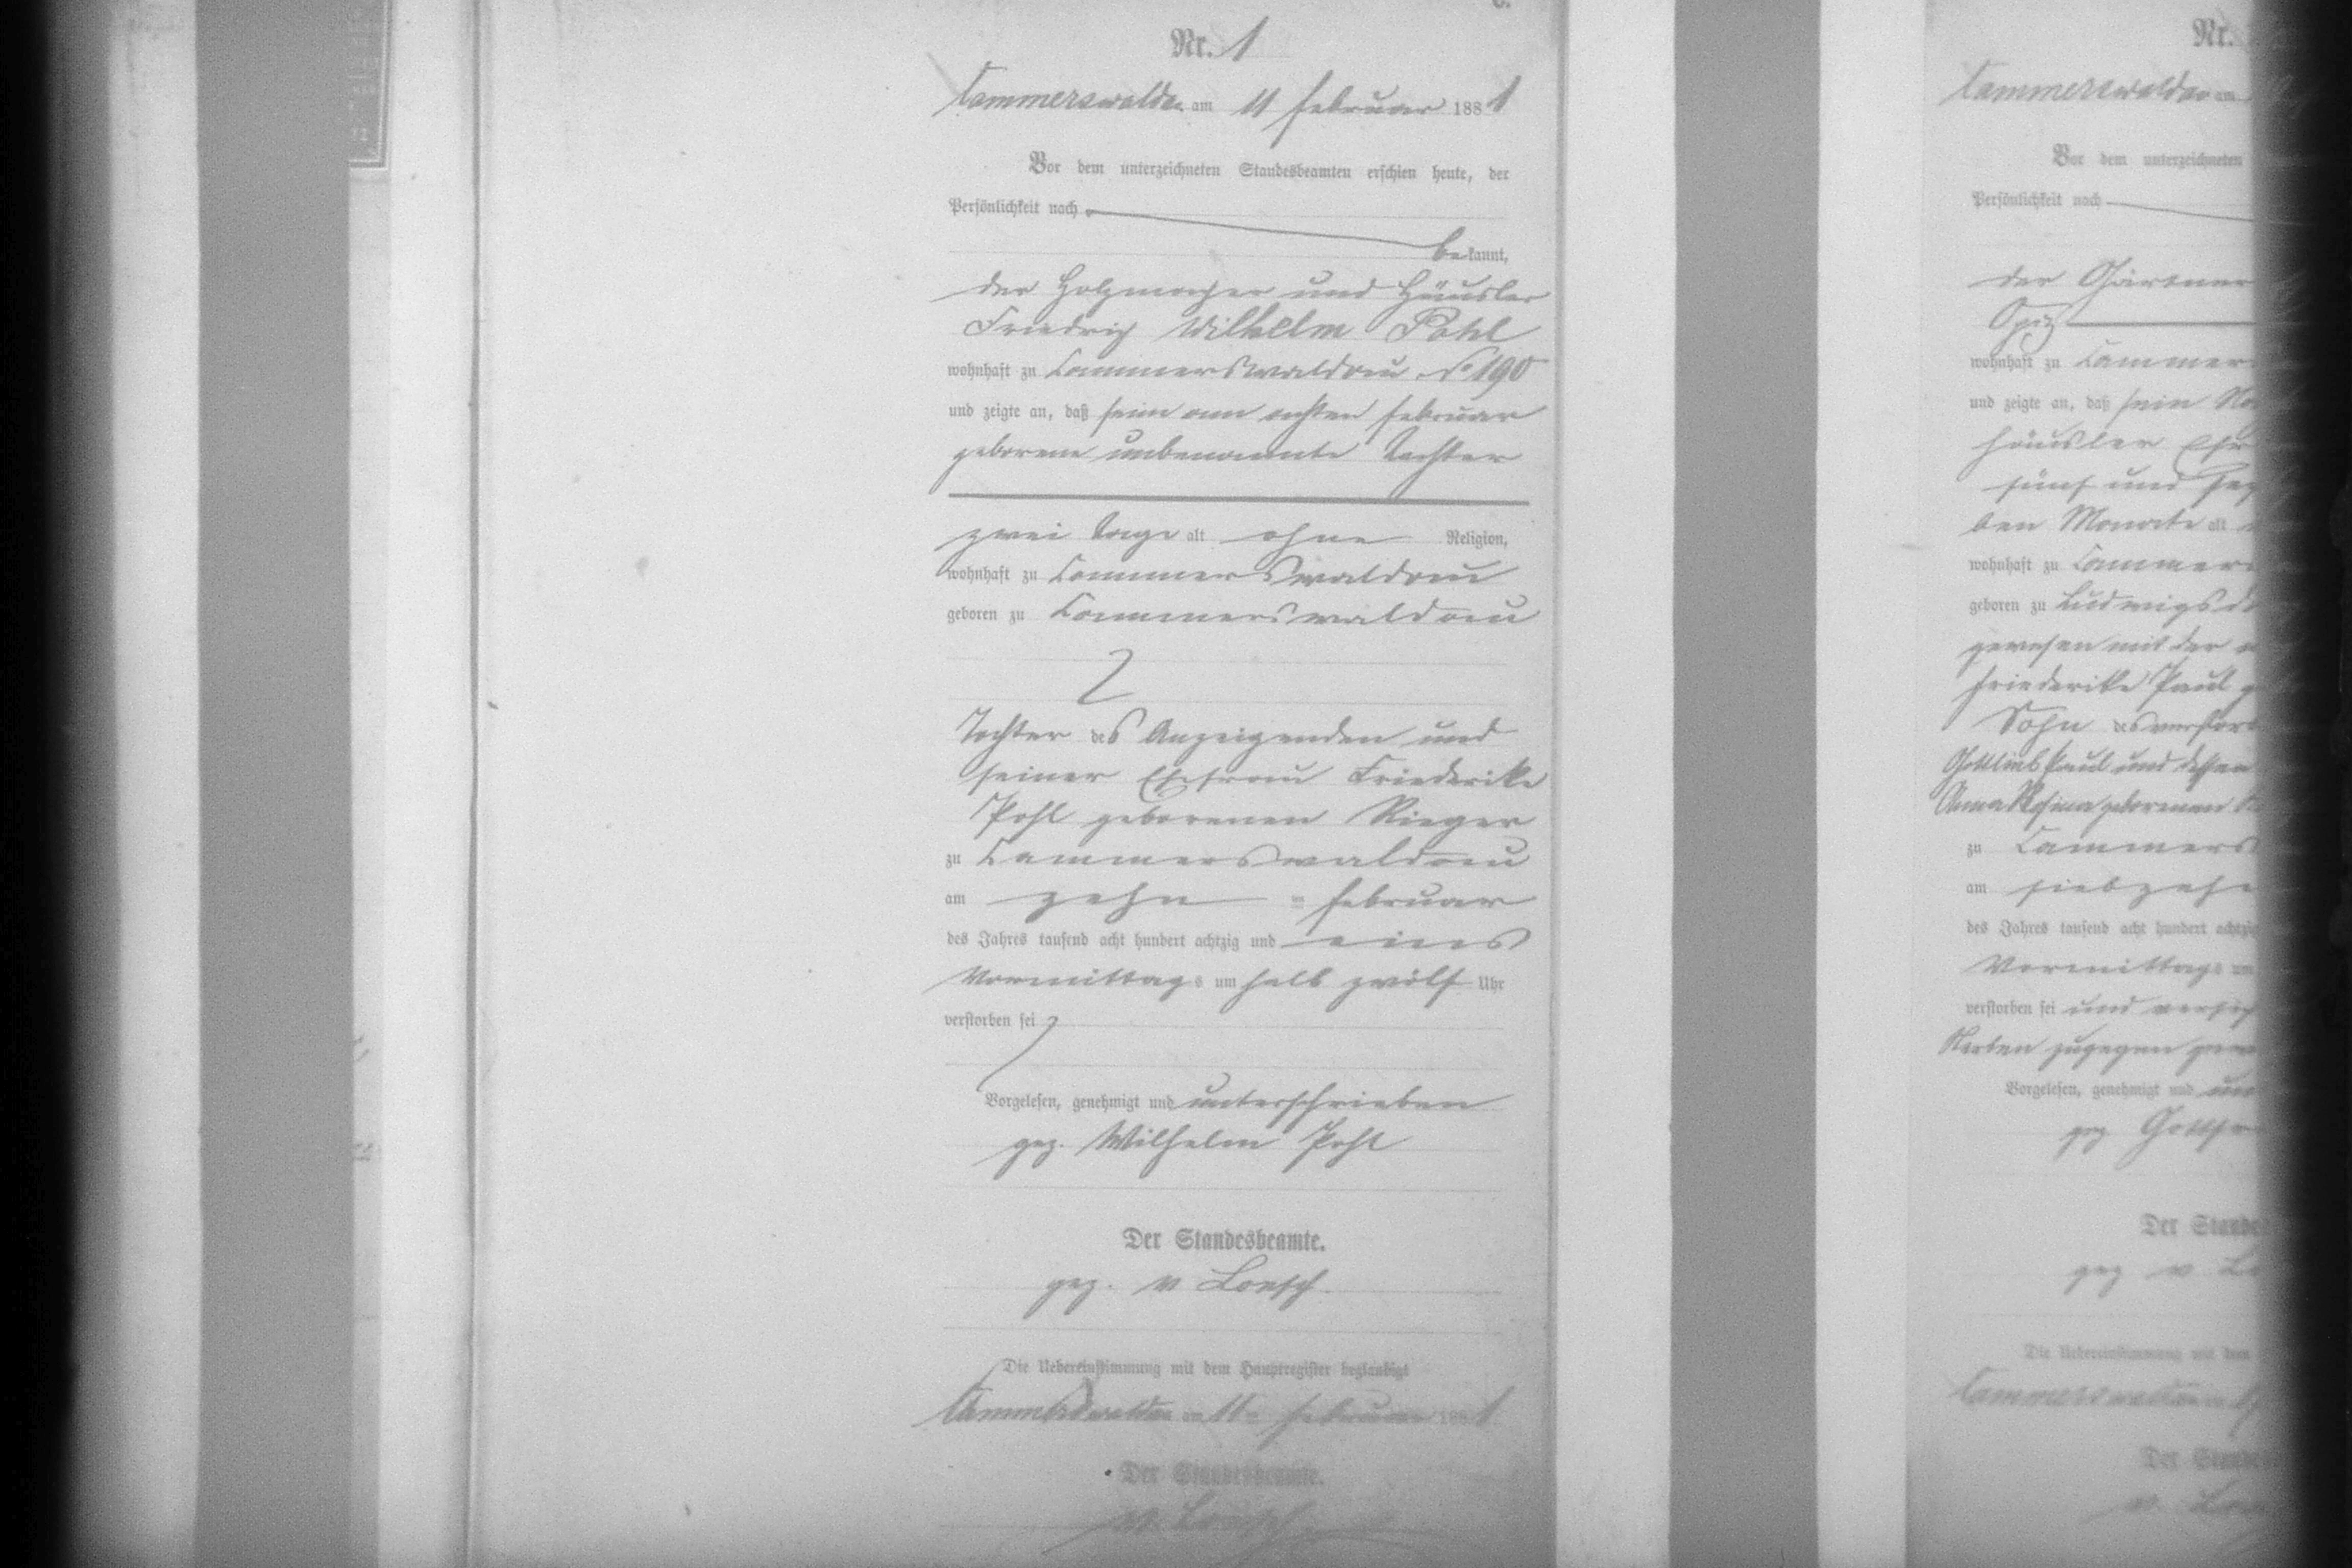 Nr. 1
Cammerswaldau am 11 Februar 1881
Vor dem unterzeichneten Standesbeamten erschien heute, der
Persönlichkeit nach
bekannt,
der Holzmacher und Häusler
Friedrich Wilhelm Pohl
wohnhaft zu Cammerswaldau No 190
und zeigte an, daß seine am achten Februar
geborene unbenannte Tochter
zwei Tage alt ohne Religion,
wohnhaft zu Cammerswaldau
geboren zu Cammerswaldau
Tochter des Anzeigenden und
seiner Ehefrau Friederike
Pohl geborenen Rieger
zu Cammerswaldau
am zehn ten Februar
des Jahres tausend acht hundert achtzig und eins
Vormittags um halb zwölf Uhr
verstorben sei
Vorgelesen, genehmigt und unterschrieben
gez. Wilhelm Pohl
Der Standesbeamte.
gez. v
Die Uebereinstimmung mit dem Hauptregister beglaubigt
Cammerswaldau am 11ten Februar 1881
Der Standesbeamte.
v.
Nr.
Cammerswaldau am
Vor dem unterzeichneten
Persönlichkeit nach
der Gärtner
wohnhaft zu Cammer
und zeigte an, daß sein
Häusler
fünf und
ben Monate alt
wohnhaft zu Cammer
geboren zu Ludwigsd
gewesen mit der
Friederike Paul
Sohn des verstor
Gottlieb Paul und dessen
Anna Rosina geborenen
zu Cammers
am siebzehn
des Jahres tausend acht hundert achtzig
Vormittags um
verstorben sei und
Sterben zugegen
Vorgelesen, genehmigt und
gez
Der Stande
gez v
Die Uebereinstimmung mit dem
Cammerswaldau
Der Stande
v.